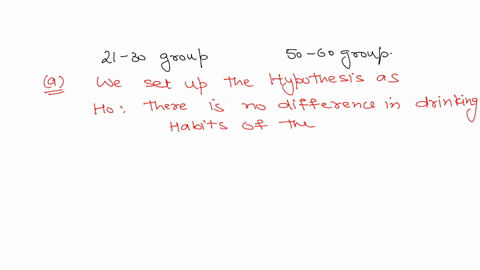 21-30 group 50-60 group.
(a) We set up the Hypothesis as
Ho: There is no difference in drinking
Habits of the